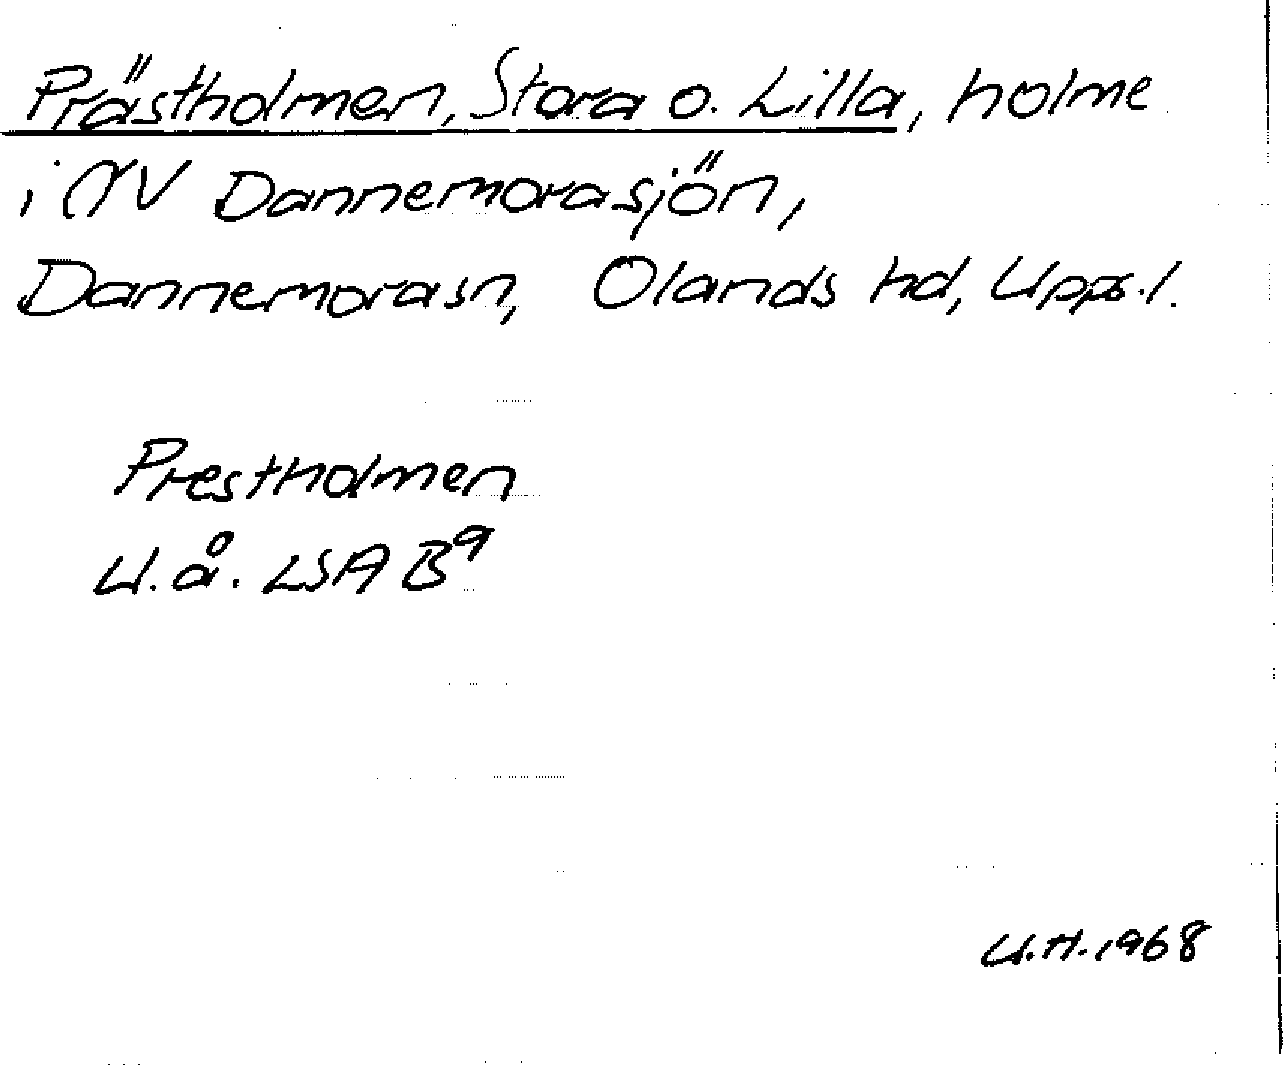 Prästholmen, Stora o. Lilla, holme
i NV Dannemorasjön,
Dannemorasn, Olands hd, Upps.l.
Prestholmen
U.å. LSA B9
U.H.1968